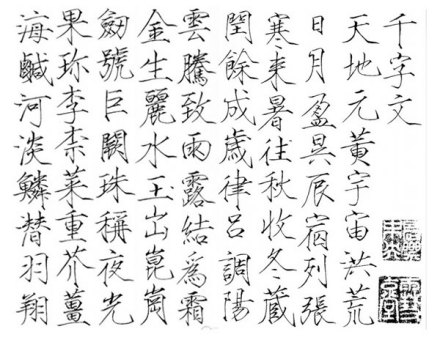 千字文
天地元黃宇宙洪荒
日月盈昃辰宿列張
寒来暑往秋收冬藏
閏餘成歲律呂調陽
雲騰致雨露結爲霜
金生麗水玉出崑崗
劒號巨闕珠稱夜光
果珎李柰菜重芥薑
海鹹河淡鱗潜羽翔